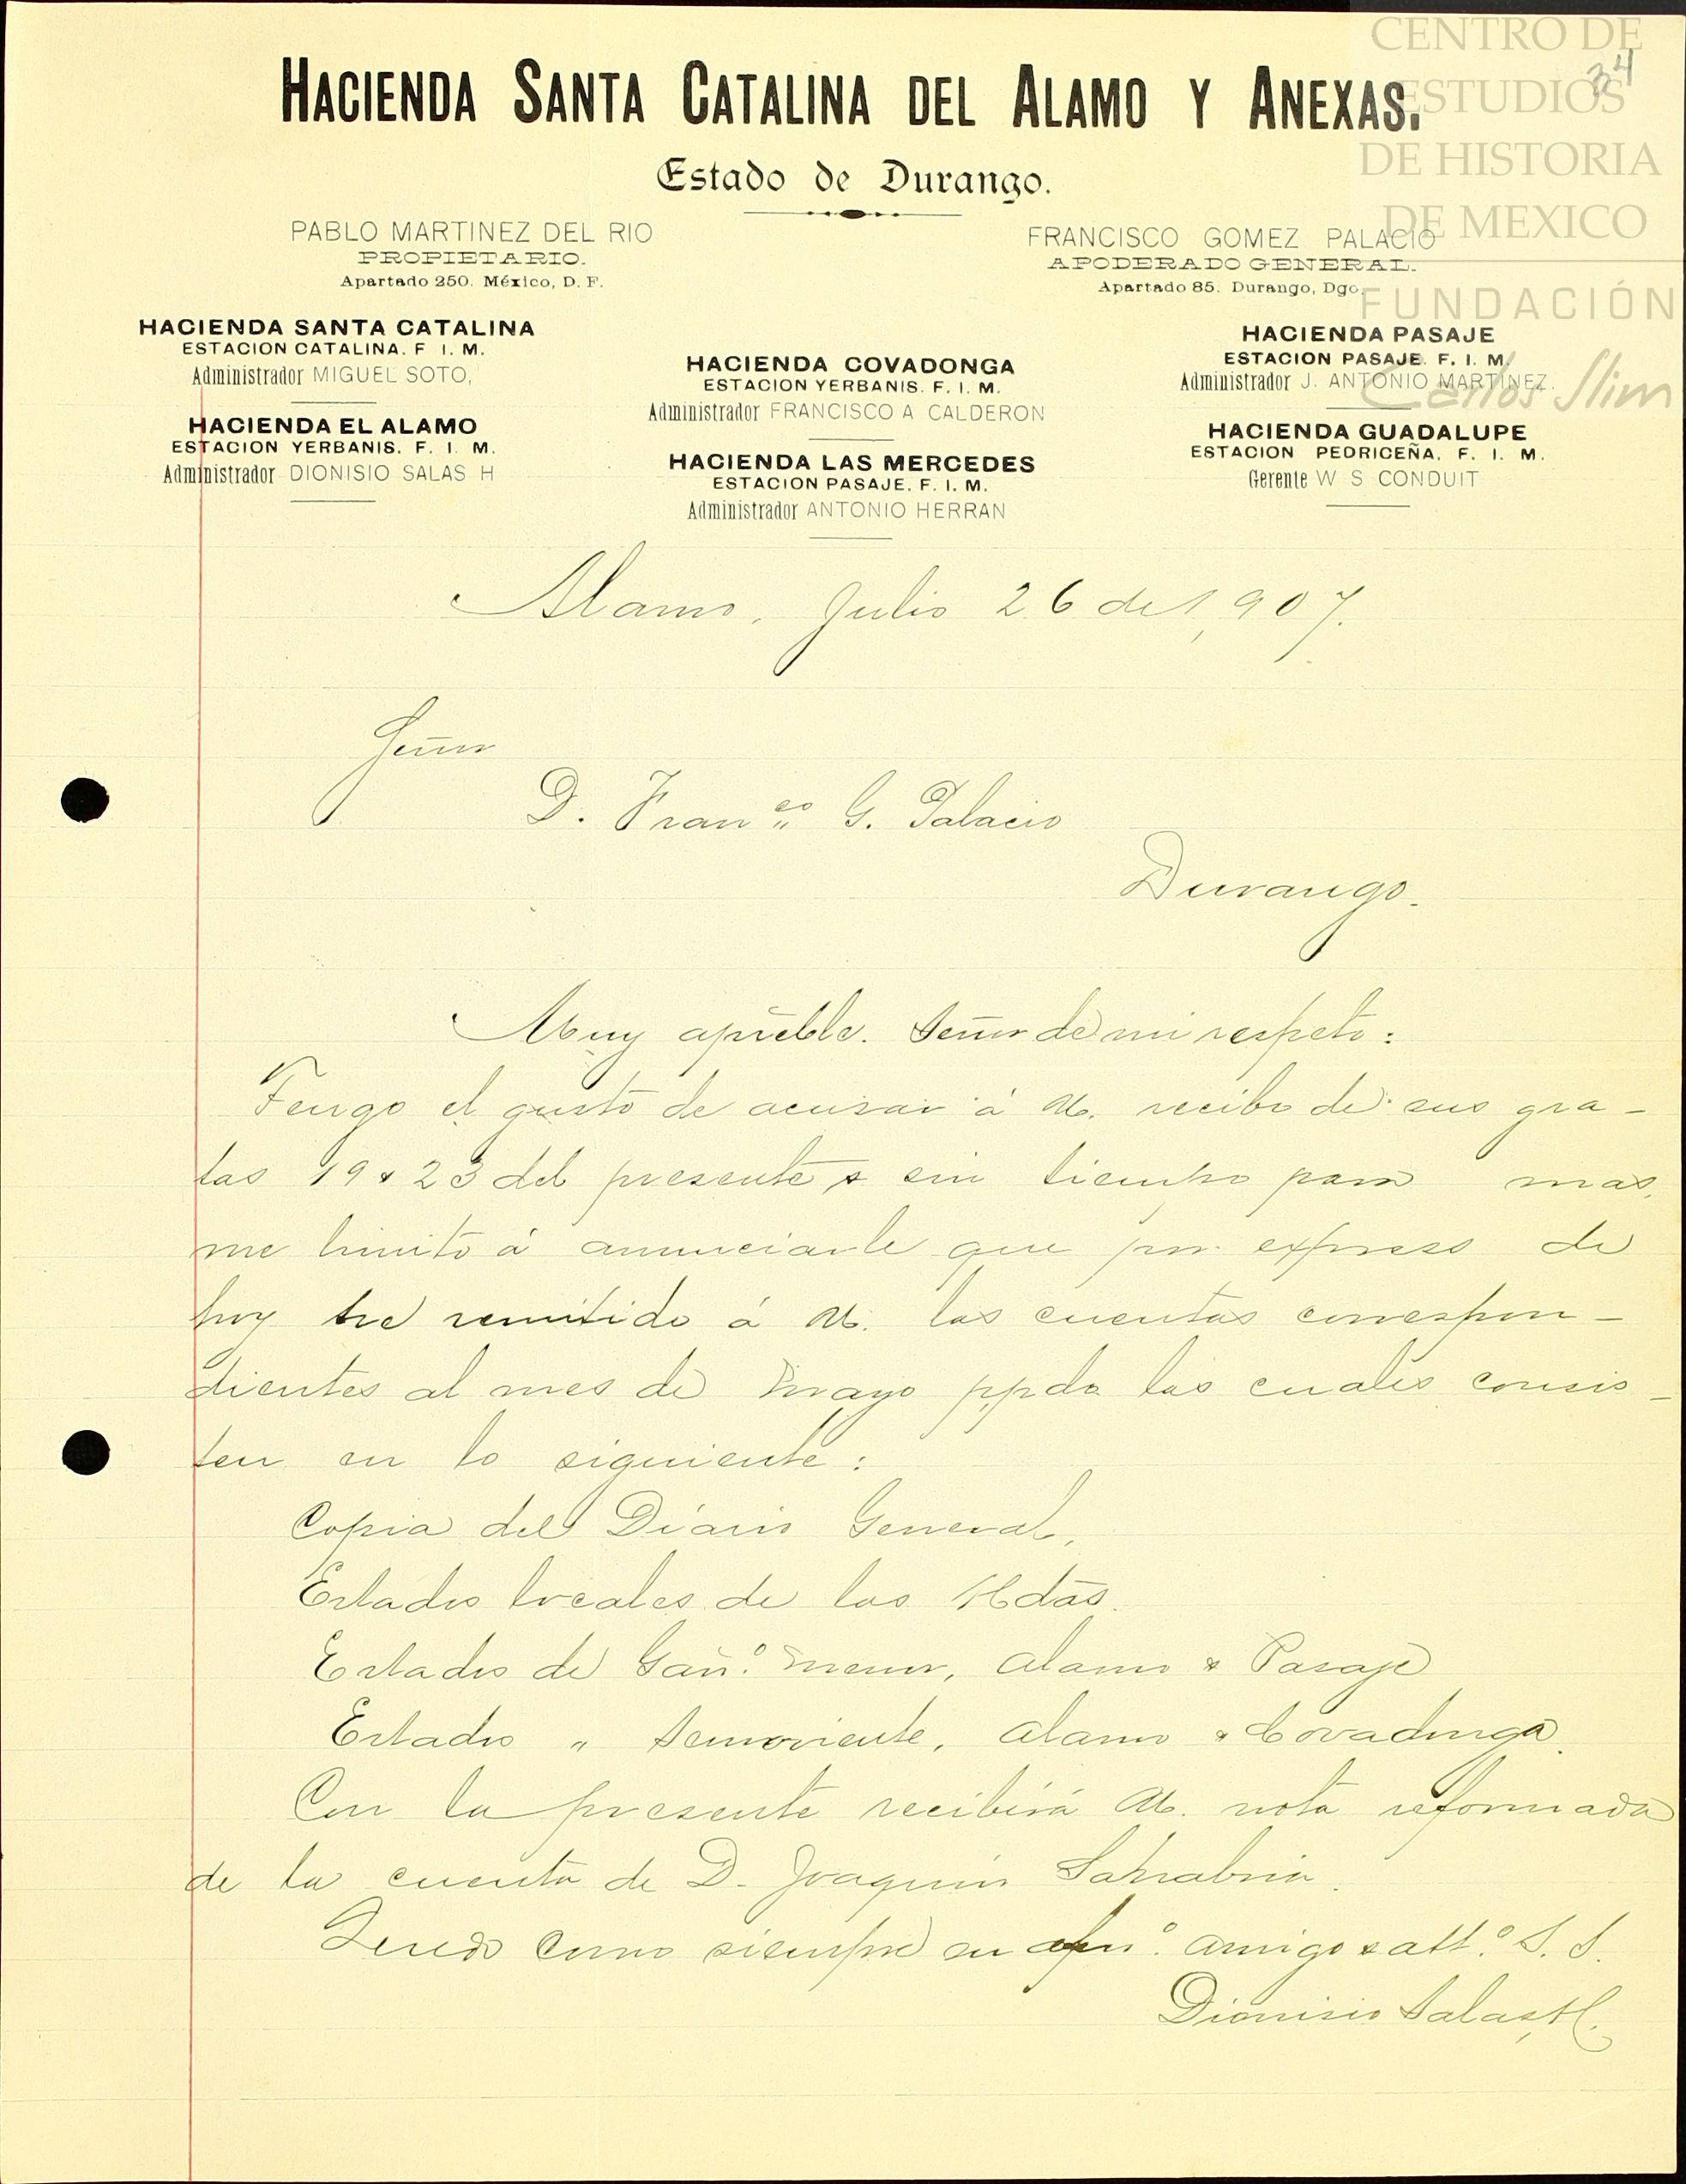 CENTRO DE
ESTUDIOS
DE HISTORIA
DE MEXICO
FUNDACIÓN
Carlos Slim
34
HACIENDA SANTA CATALINA DEL ALAMO Y ANEXAS.
Estado de Durango.
PABLO MARTINEZ DEL RIO
PROPIETARIO.
Apartado 250. México, D. F.
FRANCISCO GOMEZ PALACIO
APODERADO GENERAL.
Apartado 85. Durango, Dgo.
HACIENDA SANTA CATALINA
ESTACION CATALINA. F. I. M.
Administrador MIGUEL SOTO,
HACIENDA EL ALAMO
ESTACION YERBANIS. F. I. M.
Administrador DIONISIO SALAS H
HACIENDA COVADONGA
ESTACION YERBANIS. F. I. M.
Administrador FRANCISCO A CALDERON
HACIENDA LAS MERCEDES
ESTACION PASAJE. F. I. M.
Administrador ANTONIO HERRAN
HACIENDA PASAJE
ESTACION PASAJE. F. I. M.
Administrador J. ANTONIO MARTINEZ.
HACIENDA GUADALUPE
ESTACION PEDRICEÑA. F. I. M.
Gerente W S CONDUIT
Alamo, Julio 26 de 1,907.
Señor
D. Franco G. Palacio
Durango.
Muy apreble. Señor de mi respeto:
Tengo el gusto de acusar á U. recibo de sus gra-
tas 19 & 23 del presente & sin tiempo para mas,
me limito á anunciarle que por expreso de
hoy he remitido á U. las cuentas correspon-
dientes al mes de Mayo ppdo las cuales consis-
ten en lo siguiente:
Copia del Diario General,
Estados locales de las Hdas.
Estados de Gan.o menor, Alamo & Pasaje
Estados " Semoviente, Alamo & Covadonga.
Con la presente recibirá U. nota reformada
de la cuenta de D. Joaquin
Quedo como siempre su afmo. amigo & att.o S. S.
Dionisio Salas H.